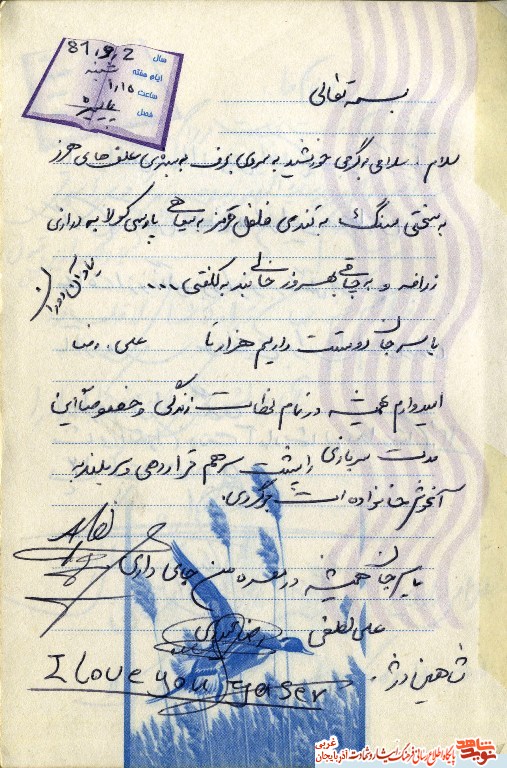 سال 81,9,2
ایام هفته شنبه
ساعت ۱,۱۵
فصل پاییز
بسمه تعالی
سلام. سلامی به گرمی خورشید به سردی برف به سبزی علف های هرز
به سختی سنگ به تندی فلفل قرمز به سیاهی پارسی کولا به درازی
زرافه و به چاقی بهروز خالی بند به کلفتی ...
یاد آن دوران
یاسر جان دوستت داریم هزار تا علی. رضا
امیدوارم همیشه در تمام لحظات زندگی و خصوصاً این
مدت سربازی را پشت سر هم قرار دهی و سربلند به
آغوش خانواده ات برگردی.
یاسر جان همیشه در معده من جای داری
علی لطفی
شاهین دژ.
I Love you Yaser
نوید شاهد
پایگاه اطلاع رسانی فرهنگ ایثار و شهادت آذربایجان غربی